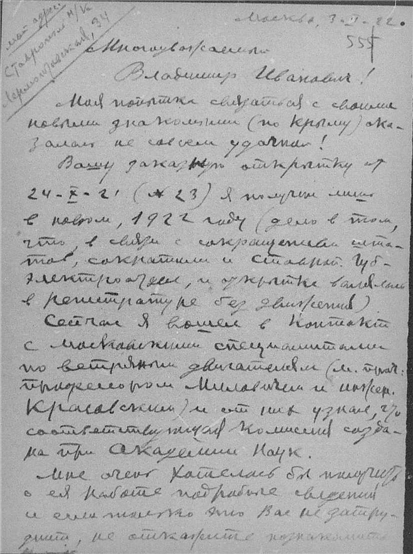 мой адрес
Ставрополь н/К
Лермонтовская, 34
Москва, 3-II-22.
555
Многоуважаемый
Владимир Иванович!
Моя попытка связаться с своими
новыми знакомыми (по Крыму) ока-
залась не совсем удачная!
Вашу заказную открытку от
24-X-21 (№ 23) я получил лишь
в новом, 1922 году (дело в том,
что, в связи с сокращением шта-
тов, сократили и Ставроп. Губ-
электроотдел, и открытка валялась
в регистратуре без движения)
Сейчас я вошел в контакт
с московскими специалистами
по ветряным двигателям
профессором и инжен.
Красовским) и от них узнал, что
соответствующая комиссия созда-
на при Академии Наук.
Мне очень хотелось бы получить
о ея работе подробные сведения
и если только это Вас не затру-
днит, не откажите познакомить